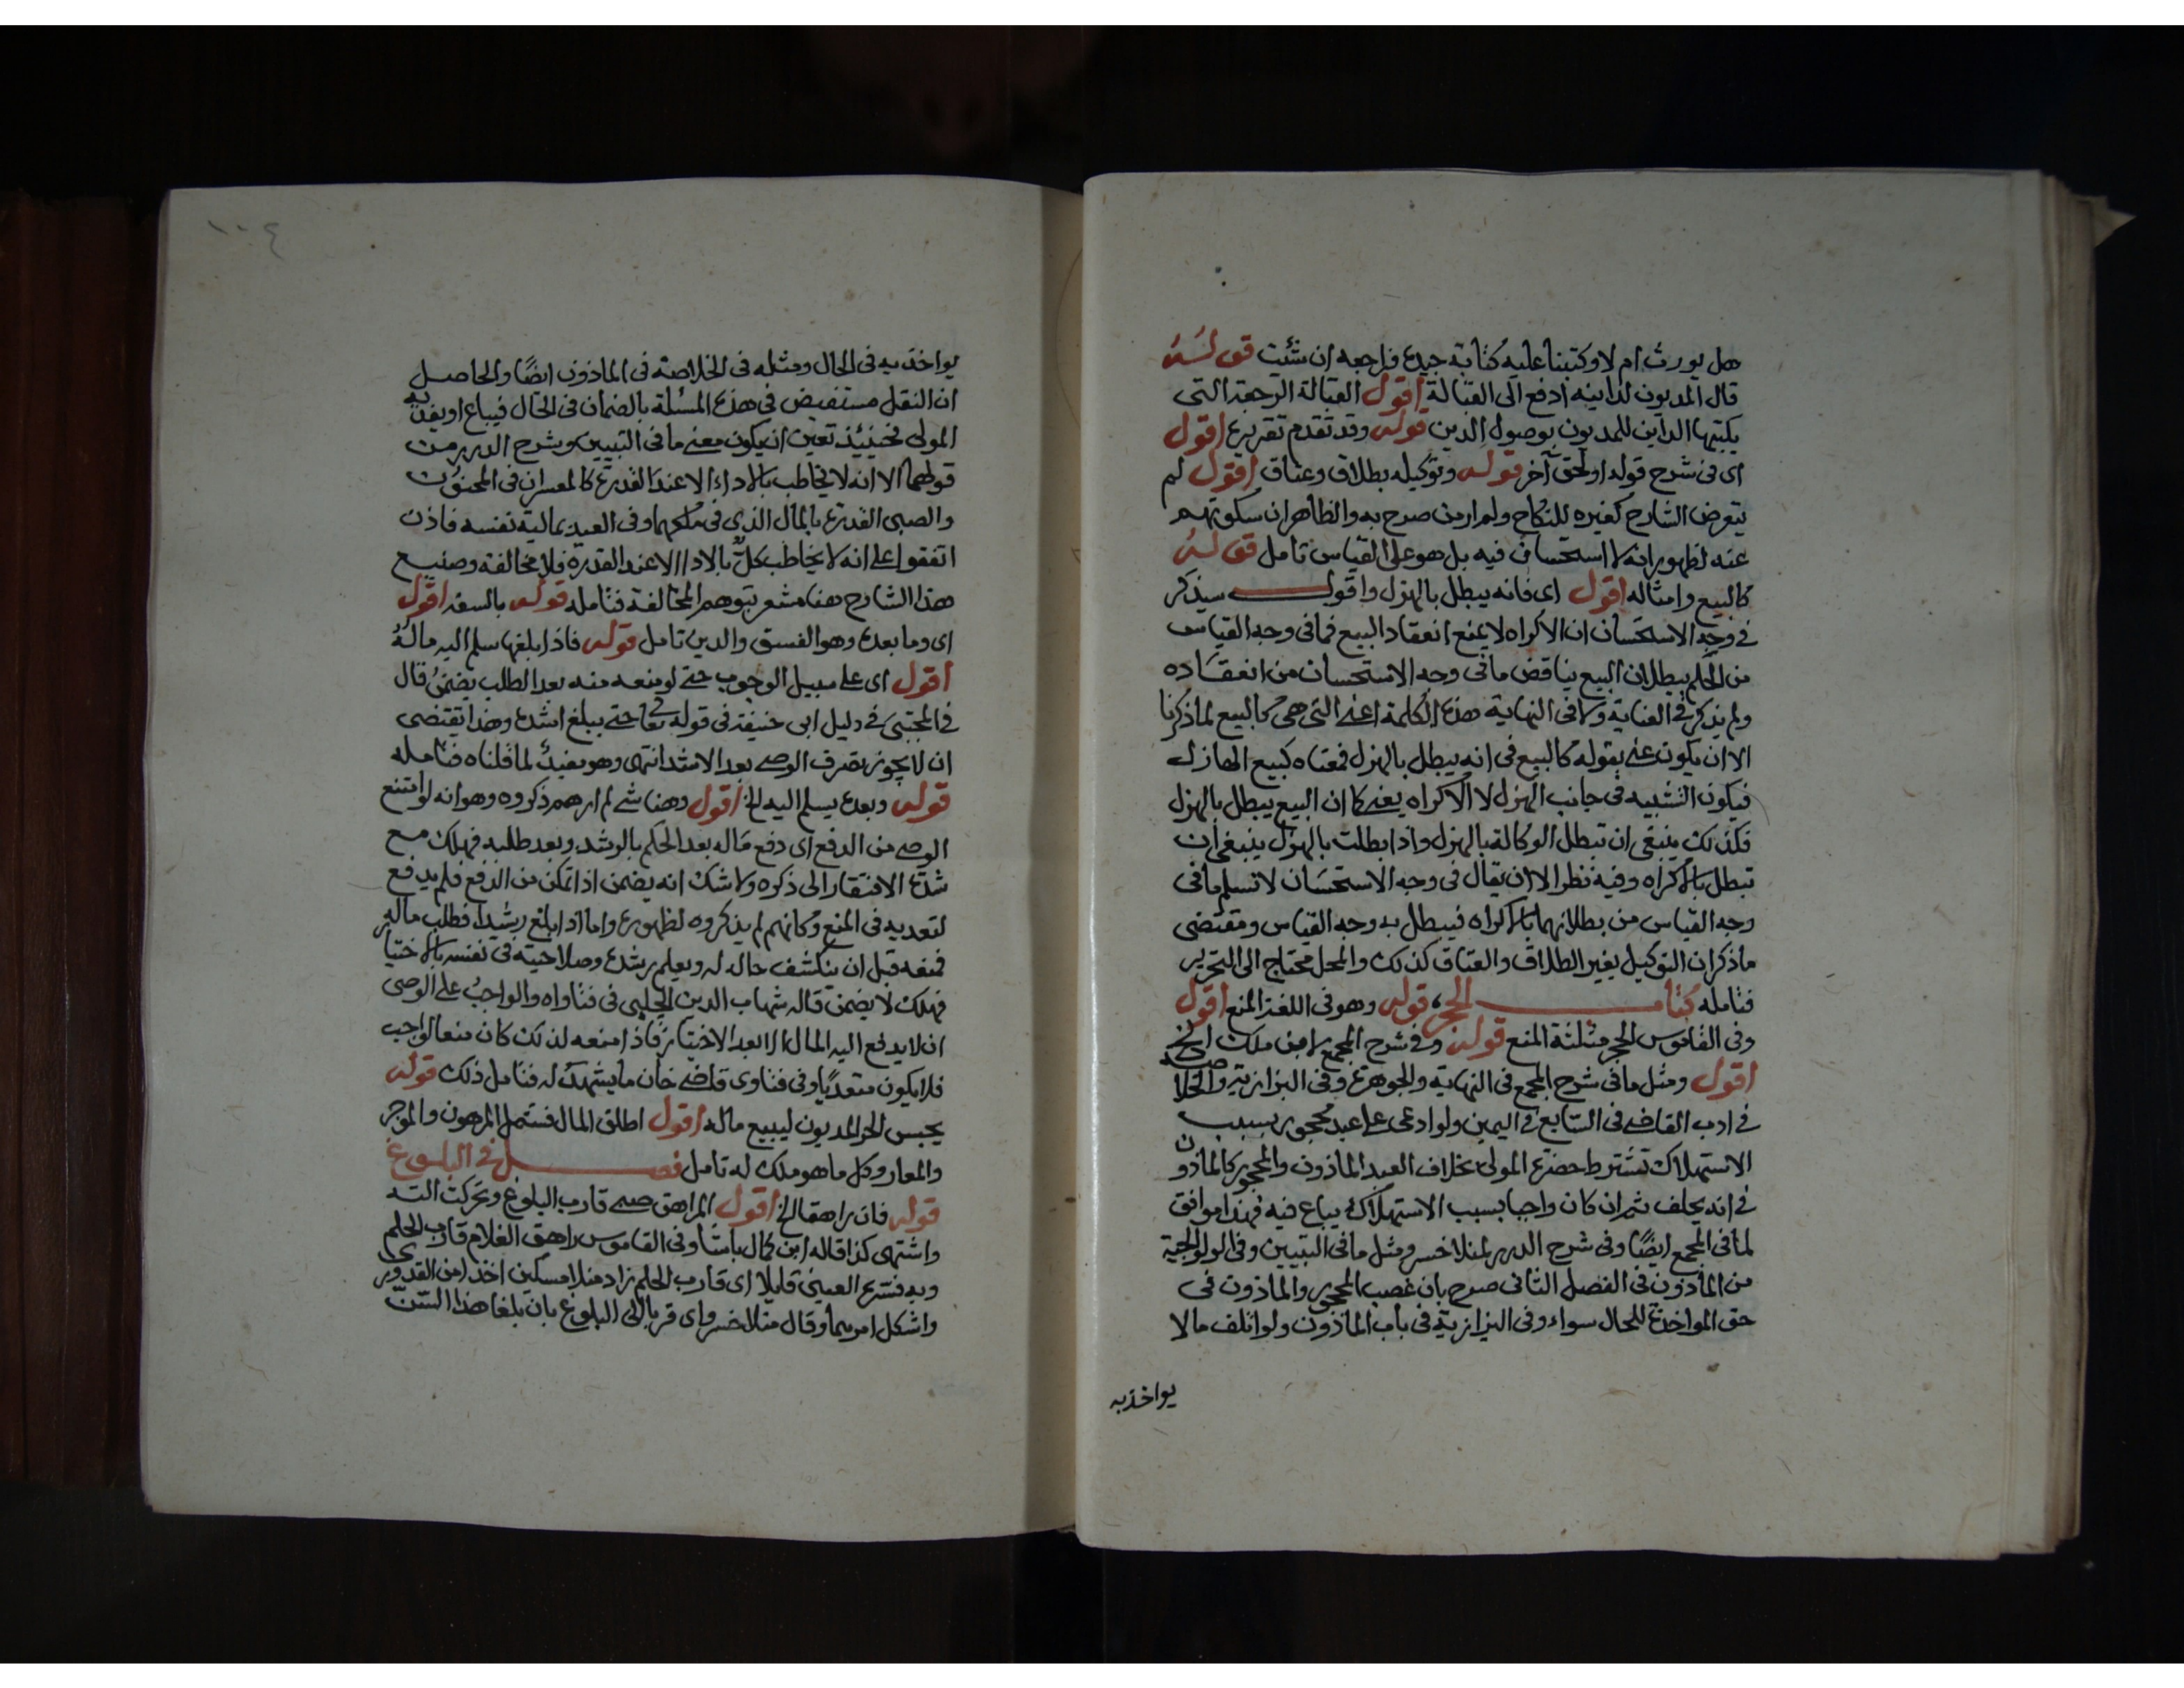 هل يورث ام لا وكتبنا عليه كتابة جيدة فراجعه ان شئت قوله
قال المديون لداينه ادفع الى القبالة اقول القبالة الرجعة التى
يكتبها الداين للمديون بوصول الدين قوله وقد تقدم تقريره اقول
اى فى شرح قوله اولحق آخر قوله وتوكيله بطلاق وعتاق اقول لم
يتعرض الشارح كغيره للنكاح ولم ار من صرح به والظاهر ان سكوتهم
عنه لظهور انه لا استحسان فيه بل هو على القياس تامل قوله
كالبيع وامثاله اقول اى فانه يبطل بالهزل واقول سيذكر
فى وجه الاستحسان ان الاكراه لا يمنع انعقاد البيع فما فى وجه القياس
من الحكم ببطلان البيع يناقض ما فى وجه الاستحسان من انعقاده
ولم يذكر فى العناية ولا فى النهاية هذه الكلمة اعنى التى هى كالبيع لما ذكرنا
الا ان يكون عنى بقوله كالبيع فى انه يبطل بالهزل فمعناه كبيع الهازل
فيكون التشبيه فى جانب الهزل لا الاكراه يعنى كما ان البيع يبطل بالهزل
فكذلك ينبغى ان تبطل الوكالة بالهزل واذا بطلت بالهزل ينبغى ان
تبطل بالاكراه وفيه نظر الا ان يقال فى وجه الاستحسان لا نسلم ما فى
وجه القياس من بطلانهما بالاكراه فيبطل به وجه القياس ومقتضى
ما ذكر ان التوكيل بغير الطلاق والعتاق كذلك والمحل محتاج الى التحرير
فتامله كتاب الحجر قوله وهو فى اللغة المنع اقول
وفى القاموس الحجر مثلثة المنع قوله وفى شرح المجمع لابن ملك الخ
اقول ومثل ما فى شرح المجمع فى النهاية والجوهرة وفى البزازية والخلاصة
فى ادب القاضى فى السابع فى اليمين ولو ادعى على عبد محجور بسبب
الاستهلاك تشترط حضرة المولى بخلاف العبد الماذون والمحجور كالماذون
فى انه يحلف ثم ان كان واجبا بسبب الاستهلاك يباع فيه فهذا موافق
لما فى المجمع ايضا وفى شرح الدرر لمنلا خسرو مثل ما فى التبيين وفى الولوالجية
من الماذون فى الفصل الثانى صرح بان غصب المحجور والماذون فى
حق المواخذة للحال سواء وفى البزازية فى باب الماذون ولو اتلف مالا
يواخذ به
١٠٤
يواخذ به فى الحال ومثله فى الخلاصة فى الماذون ايضا والحاصل
ان النقل مستفيض فى هذه المسئلة بالضمان فى الحال فيباع او يفديه
المولى فحينئذ تعين ان يكون معنى ما فى التبيين وشرح الدرر من
قولهما الا انه لا يخاطب بالاداء الا عند القدرة كالمعسر ان فى المجنون
والصبى القدرة بالمال الذى فى ملكهما وفى العبد بمالية نفسه فاذن
اتفقوا على انه لا يخاطب كل بالاداء الا عند القدرة فلا مخالفة وصنيع
هذا الشارح هنا مشعر بتوهم المخالفة فتامله قوله بالسفه اقول
اى وما بعده وهو الفسق والدين تامل قوله فاذا بلغها سلم اليه ماله
اقول اى على سبيل الوجوب حتى لو منعه منه بعد الطلب يضمن قال
فى المجتبى فى دليل ابى حنيفة فى قوله تعالى حتى يبلغ اشده وهذا يقتضى
ان لا يجوز تصرف الوصى بعد الاشد انتهى وهو مفيد لما قلناه فتامله
قوله وبعده يسلم اليه الخ اقول وهنا شئ لم ارهم ذكروه وهو انه لو امتنع
الوصى من الدفع اى دفع ماله بعد الحكم بالرشد وبعد طلبه فهلك مع
شدة الافتقار الى ذكره ولا شك انه يضمن اذا تمكن من الدفع فلم يدفع
لتعديه فى المنع وكانهم لم يذكروه لظهوره واما اذا بلغ رشيدا فطلب ماله
فمنعه قبل ان ينكشف حاله له ويعلم رشده وصلاحيته فى نفسه بالاختيا
فهلك لا يضمن قاله شهاب الدين الحلبى فى فتاواه والواجب على الوصى
ان لا يدفع اليه المال الا بعد الاختيار فاذا منعه لذلك كان منعا لواجب
فلا يكون متعديا وفى فتاوى قاضى خان ما يشهد له فتامل ذلك قوله
يحبس الحر المديون ليبيع ماله اقول اطلق المال فشمل المرهون والموجر
والمعار وكل ما هو ملك له تامل فصل فى البلوغ
قوله فان راهقا الخ اقول المراهق صبى قارب البلوغ وتحركت الته
واشتهى كذا قاله ابن كمال باشا وفى القاموس راهق الغلام قارب الحلم
وبه فسره العينى قايلا اى قارب الحلم زاد منلا مسكين اخذا من القدورى
واشكل امرهما وقال منلا خسرو اى قربا الى البلوغ بان بلغا هذا السن